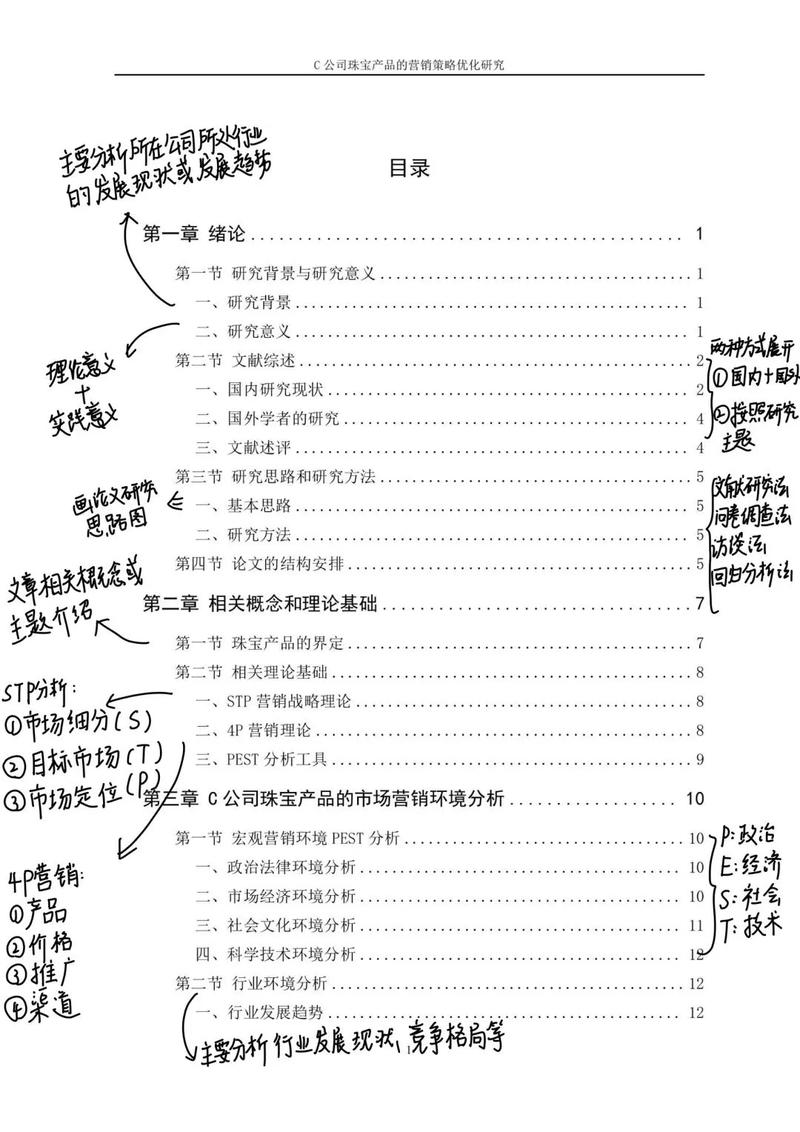 C 公司珠宝产品的营销策略优化研究
主要分析所在公司所处行业
的发展现状或发展趋势
目录
第一章 绪论 1
第一节 研究背景与研究意义 1
一、研究背景 1
二、研究意义 1
理论意义
+
实践意义
第二节 文献综述 2
一、国内研究现状 2
二、国外学者的研究 4
三、文献述评 4
两种方式展开
①国内+国外
②按照研究
主题
第三节 研究思路和研究方法 5
一、基本思路 5
二、研究方法 5
画论文研究
思路图
文献研究法
问卷调查法
访谈法
回归分析法
第四节 论文的结构安排 5
第二章 相关概念和理论基础 7
文章相关概念或
主题介绍
第一节 珠宝产品的界定 7
第二节 相关理论基础 8
一、STP 营销战略理论 8
二、4P 营销理论 8
三、PEST 分析工具 9
STP分析:
①市场细分(S)
②目标市场(T)
③市场定位(P)
第三章 C 公司珠宝产品的市场营销环境分析 10
第一节 宏观营销环境 PEST 分析 10
一、政治法律环境分析 10
二、市场经济环境分析 10
三、社会文化环境分析 11
四、科学技术环境分析 12
P:政治
E:经济
S:社会
T:技术
4P营销:
①产品
②价格
③推广
④渠道
第二节 行业环境分析 12
一、行业发展趋势 12
主要分析行业发展现状、竞争格局等